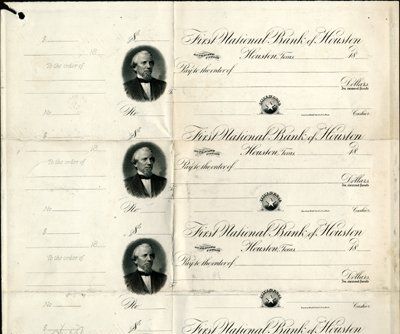 $ $ First National Bank of Houston
18 Houston, Texas 18
To the order of Pay to the order of
Dollars
In current funds
No. No. Cashier
$ $ First National Bank of Houston
18 Houston, Texas 18
To the order of Pay to the order of
Dollars
In current funds
No. No. Cashier
$ $ First National Bank of Houston
18 Houston, Texas 18
To the order of Pay to the order of
Dollars
In current funds
No. No. Cashier
$ $ First National Bank of Houston